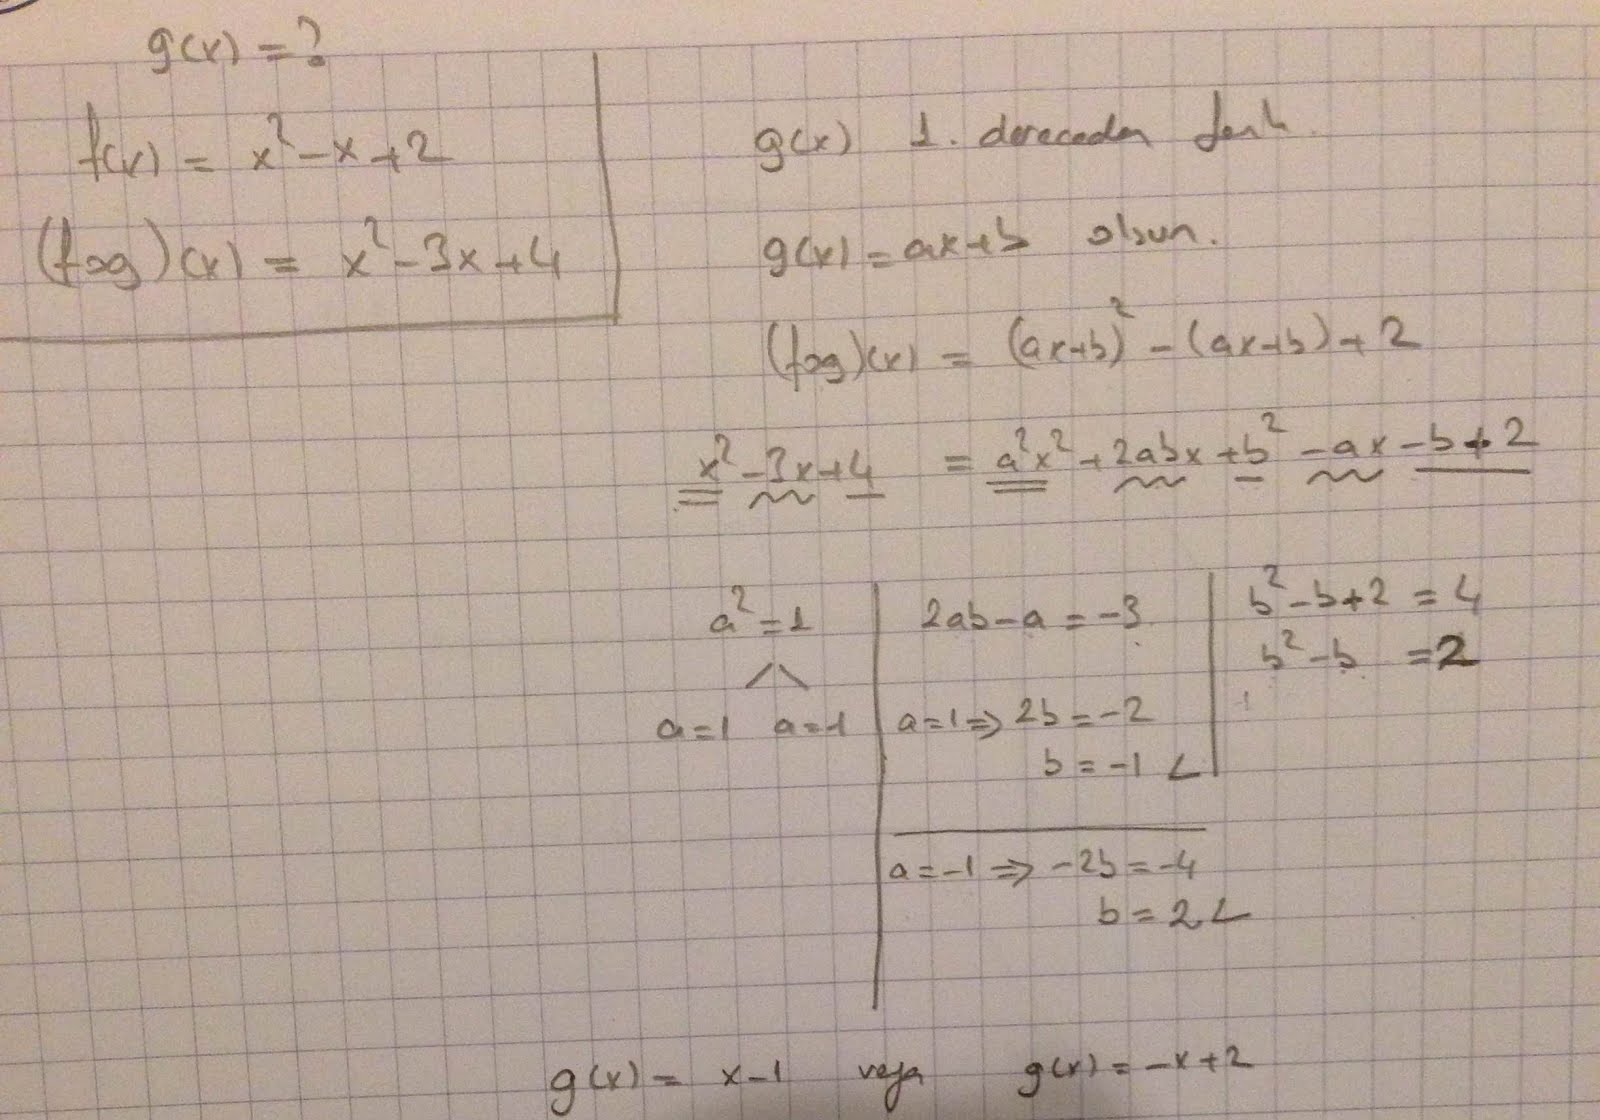 g(x) = ?
f(x) = x² - x + 2
(fog)(x) = x² - 3x + 4
g(x) 1. dereceden fonk.
g(x) = ax + b olsun.
(fog)(x) = (ax+b)² - (ax+b) + 2
x² - 3x + 4 = a²x² + 2abx + b² - ax - b + 2
a² = 1
a = 1 a = -1
2ab - a = -3
a = 1 ⇒ 2b = -2
b = -1
a = -1 ⇒ -2b = -4
b = 2
b² - b + 2 = 4
b² - b = 2
g(x) = x - 1 veya g(x) = -x + 2